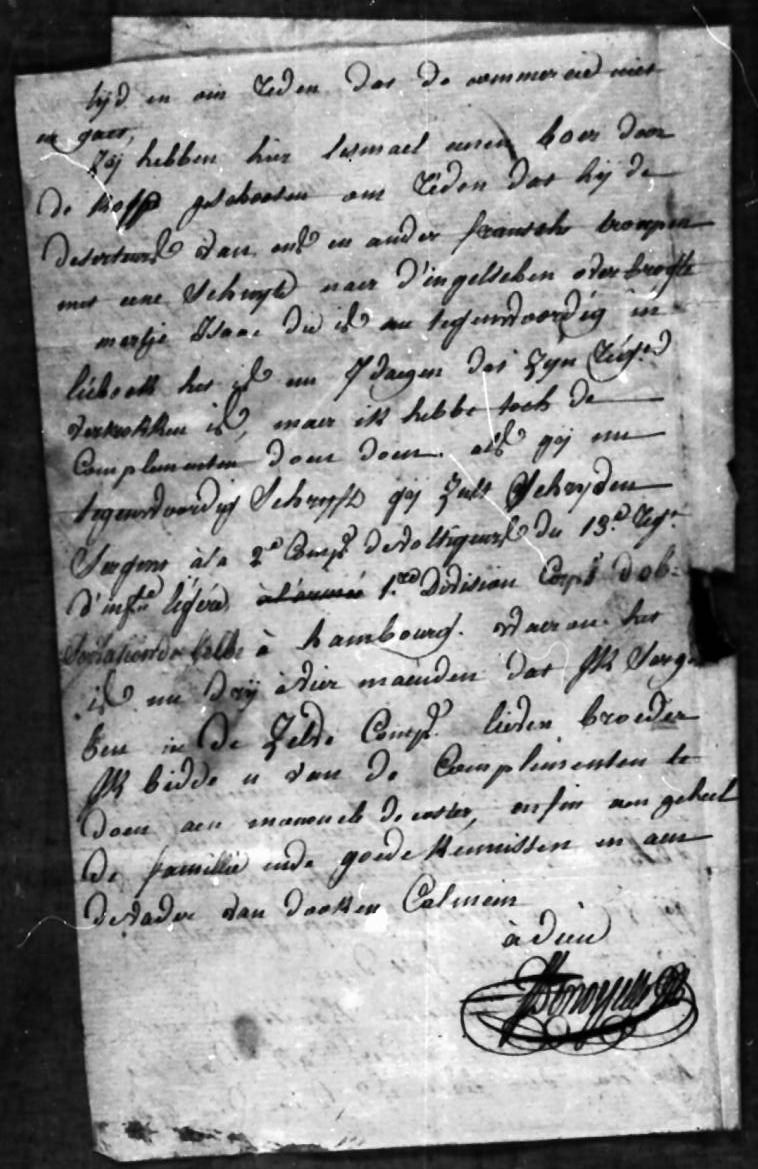 tijd en om reden dat de commercie niet
en gaet,
Zij hebben hier eenen boer door
de kopp geschooten om reden dat hij de
deserteurs van ons en ander fransche troupen
met eene Schuyte naer d'ingelschen oderbrogte
martje Isaac die is nu tegenwoordig in
lubeck het is nu 7 daegen dat zyn Regt
vertrokken is, maer ik hebbe toch de
Complementen doen doen. als gij nu
tegenwoordig Schryft gij zult Schryven
Sergent à la 2e Compe de voltigeurs du 13e Regt
d'inftie légère à l'armée 1re Division Corps d'ob-
servation de l'elbe à hambourg. waer van het
is nu drij à vier maenden dat ik Serge
ben in de zelve Compe lieven broeder
Ik bidde u van de Complimenten te
doen aen manuel de coster, enfin aen geheel
de famillie ende goede kennissen en aen
de vader van dooken Calmein
à dieu